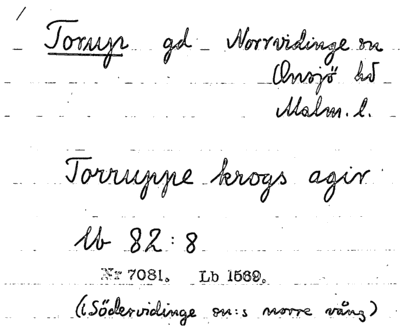 Torup gd Norrvidinge sn
Onsjö hd
Malm. l.
Torruppe krogs agir
Lb 82:8
Nr 7081. Lb 1569.
(i Södervidinge sn:s norre vång)